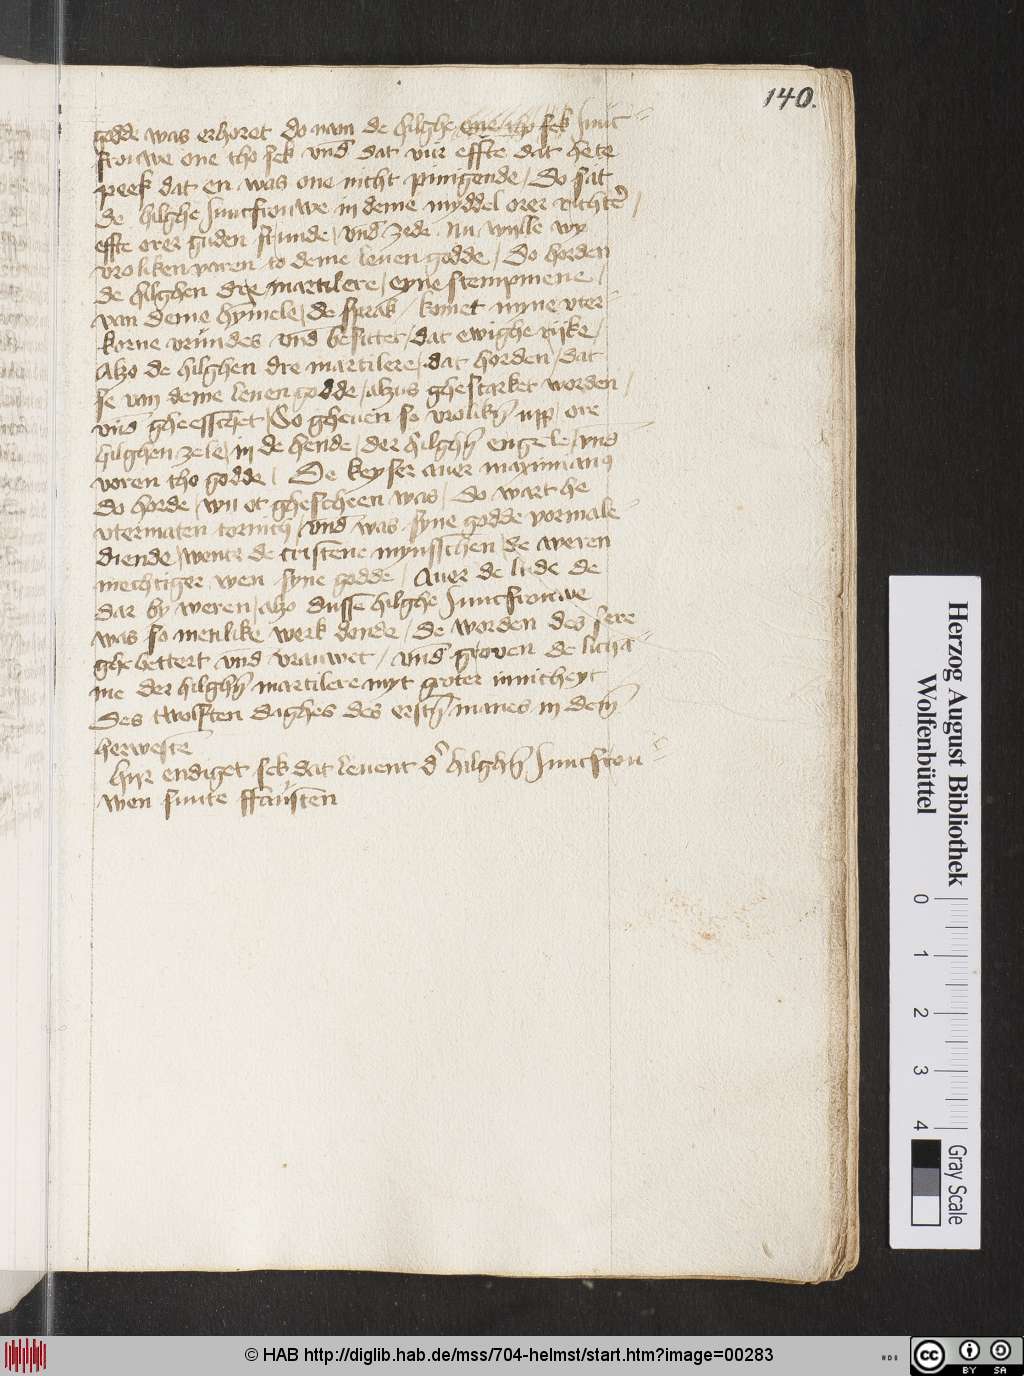 140.
godde was erhoret do nam de hilghe one tho sek Junc=
frouwe one tho sek vnd dat vur effte dat hete
peek dat en was one nicht pinigende / Do sat
de hilghe Juncfrouwe in deme myddel orer richter /
effte orer guden frunde / vnd zede Nu wylle wy
vroliken varen to deme leuen godde / Do horden
de hilghen dre martilere / eyne stempmene /
van deme hymmele / de sprak / komet myne vter=
korne vrundes vnd besittet / dat ewighe rijke /
Alzo de hilghen dre martilere / dat horden / dat
se van deme leuen godde / alzus ghestarket worden /
vnd gheesschet / So gheuen se vroliken vpp / ore
hilghen zele / in de hende / der hilghen engele / vnd
voren tho godde / De keyser auer maximianus
do horde / wu ot ghescheen was / do wart he
vtermaten tornich / vnd was syne godde vormale=
diende / wente de cristene mynsschen / de weren
mechtiger wen syne godde / Auer de lude de
dar by weren / alzo dusse hilghe Juncfrouwe
was so menlike werk donde / De worden des sere
ghebettert vnd vrauwet / vnd groven de licha=
me der hilghen martilere myt groter innicheyt
Des twolften daghes des ersten manes in dem
herweste
Hyr endiget sek dat leuent der hilghen Juncfrou=
wen sunte ffausten
Herzog August Bibliothek
Wolfenbüttel
0 1 2 3 4
Gray Scale
© HAB http://diglib.hab.de/mss/704-helmst/start.htm?image=00283
HAB
cc BY SA